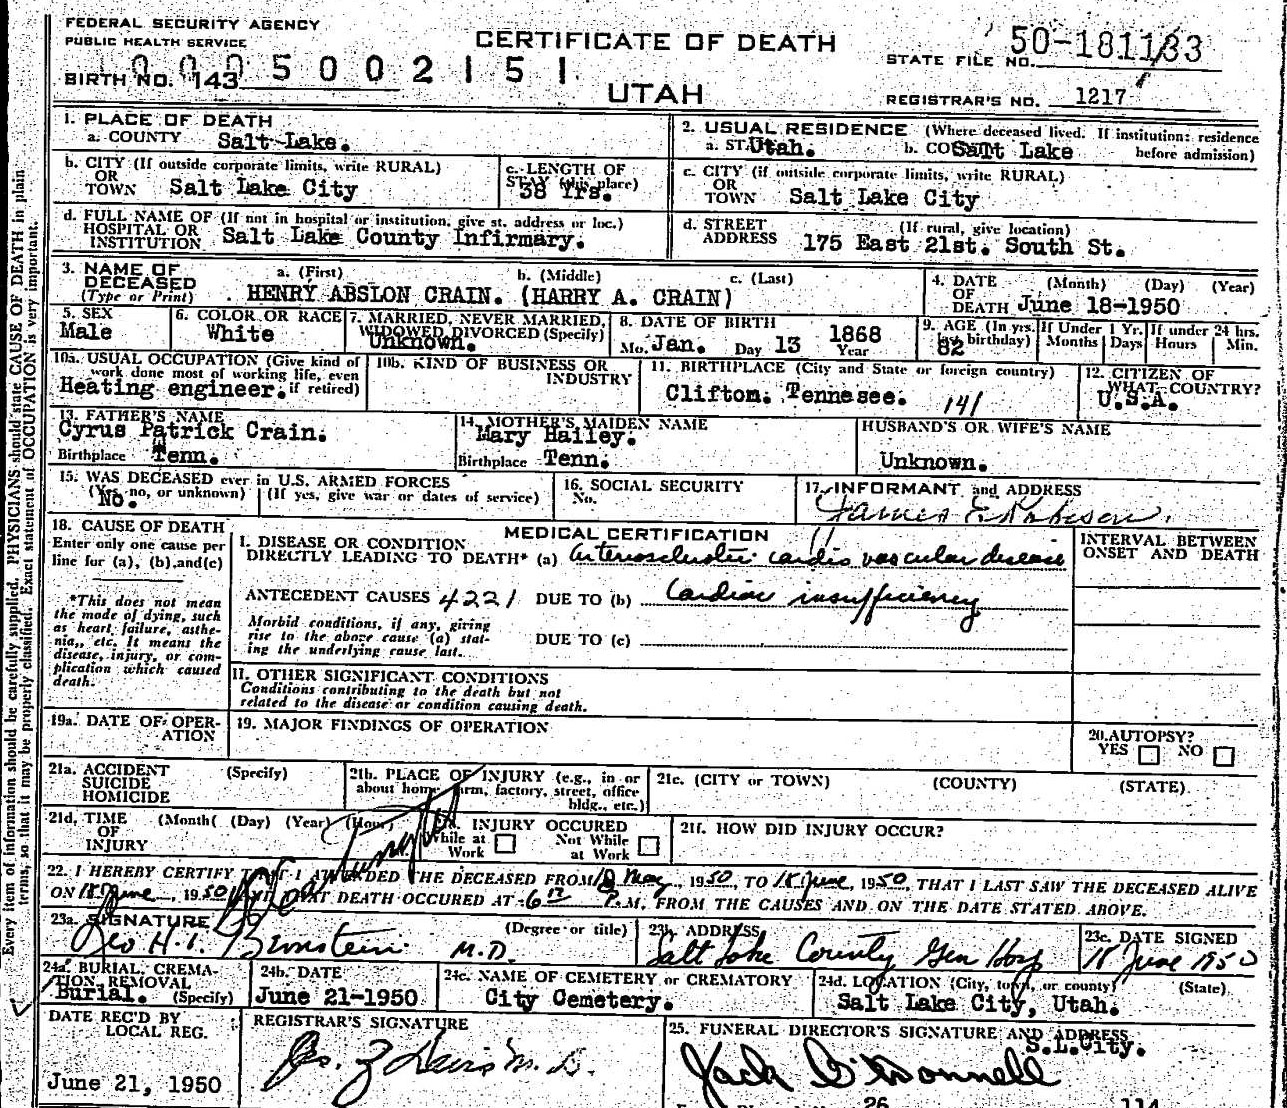 FEDERAL SECURITY AGENCY
PUBLIC HEALTH SERVICE
CERTIFICATE OF DEATH
STATE FILE NO. 50-1811/33
0005002151
BIRTH NO. 143
UTAH
REGISTRAR'S NO. 1217
1. PLACE OF DEATH
a. COUNTY Salt Lake.
2. USUAL RESIDENCE (Where deceased lived. If institution: residence before admission)
a. STATE Utah. b. COUNTY Salt Lake
b. CITY (If outside corporate limits, write RURAL)
OR
TOWN Salt Lake City
c. LENGTH OF
STAY (this place)
38 Yrs.
c. CITY (if outside corporate limits, write RURAL)
OR
TOWN Salt Lake City
d. FULL NAME OF (If not in hospital or institution, give st. address or loc.)
HOSPITAL OR
INSTITUTION Salt Lake County Infirmary.
d. STREET (If rural, give location)
ADDRESS 175 East 21st. South St.
3. NAME OF DECEASED
(Type or Print)
a. (First) b. (Middle) c. (Last)
HENRY ABSLON CRAIN. (HARRY A. CRAIN)
4. DATE OF DEATH (Month) (Day) (Year)
June 18-1950
5. SEX
Male
6. COLOR OR RACE
White
7. MARRIED, NEVER MARRIED,
WIDOWED, DIVORCED (Specify)
Unknown.
8. DATE OF BIRTH
Mo. Jan. Day 13 1868 Year
9. AGE (In yrs. last birthday)
82
If Under 1 Yr. Months Days
If under 24 hrs. Hours Min.
10a. USUAL OCCUPATION (Give kind of
work done most of working life, even
if retired)
Heating engineer.
10b. KIND OF BUSINESS OR
INDUSTRY
11. BIRTHPLACE (City and State or foreign country)
Clifton. Tennesee. 141
12. CITIZEN OF
WHAT COUNTRY?
U.S.A.
13. FATHER'S NAME
Cyrus Patrick Crain.
Birthplace Tenn.
14. MOTHER'S MAIDEN NAME
Mary Hailey.
Birthplace Tenn.
HUSBAND'S OR WIFE'S NAME
Unknown.
15. WAS DECEASED ever in U.S. ARMED FORCES
(Yes, no, or unknown) (If yes, give war or dates of service)
No.
16. SOCIAL SECURITY
No.
17. INFORMANT and ADDRESS
James E.
18. CAUSE OF DEATH
Enter only one cause per
line for (a), (b), and (c)
*This does not mean
the mode of dying, such
as heart failure, asthe-
nia, etc. It means the
disease, injury, or com-
plication which caused
death.
MEDICAL CERTIFICATION
INTERVAL BETWEEN
ONSET AND DEATH
I. DISEASE OR CONDITION
DIRECTLY LEADING TO DEATH* (a) Arteriosclerotic cardio vascular disease
ANTECEDENT CAUSES 4221 DUE TO (b) Cardiac insufficiency
Morbid conditions, if any, giving
rise to the above cause (a) stat-
ing the underlying cause last.
DUE TO (c)
II. OTHER SIGNIFICANT CONDITIONS
Conditions contributing to the death but not
related to the disease or condition causing death.
19a. DATE OF OPER-
ATION
19. MAJOR FINDINGS OF OPERATION
20. AUTOPSY?
YES NO
21a. ACCIDENT (Specify)
SUICIDE
HOMICIDE
21b. PLACE OF INJURY (e.g., in or
about home, farm, factory, street, office
bldg., etc.)
21c. (CITY or TOWN) (COUNTY) (STATE)
21d. TIME (Month( (Day) (Year) (Hour)
OF
INJURY
INJURY OCCURED
While at Work Not While at Work
21f. HOW DID INJURY OCCUR?
22. I HEREBY CERTIFY THAT I ATTENDED THE DECEASED FROM 18 May, 1950, TO 18 June, 1950, THAT I LAST SAW THE DECEASED ALIVE
ON 18 June, 1950, THAT DEATH OCCURED AT P.M. FROM THE CAUSES AND ON THE DATE STATED ABOVE.
23a. SIGNATURE (Degree or title)
Leo H. Bernstein M.D.
23b. ADDRESS
Salt Lake County Gen Hosp
23c. DATE SIGNED
18 June 1950
24a. BURIAL, CREMA-
TION, REMOVAL
(Specify)
Burial.
24b. DATE
June 21-1950
24c. NAME OF CEMETERY or CREMATORY
City Cemetery.
24d. LOCATION (City, town, or county) (State)
Salt Lake City, Utah.
DATE REC'D BY
LOCAL REG.
June 21, 1950
REGISTRAR'S SIGNATURE
M.D.
25. FUNERAL DIRECTOR'S SIGNATURE AND ADDRESS
S.L.City.
Jack O'Donnell
26 114
Every item of information should be carefully supplied. PHYSICIANS should state CAUSE OF DEATH in plain
terms, so that it may be properly classified. Exact statement of OCCUPATION is very important.